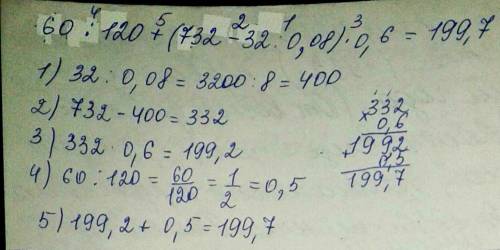 60 : 120 + (732 - 32 : 0,08) · 0,6 = 199,7
4 5 2 1 3
1) 32 : 0,08 = 3200 : 8 = 400
2) 732 - 400 = 332
3) 332 · 0,6 = 199,2
4) 60 : 120 = 60/120 = 1/2 = 0,5
5) 199,2 + 0,5 = 199,7
332
× 0,6
199 2
+ 0,5
199,7